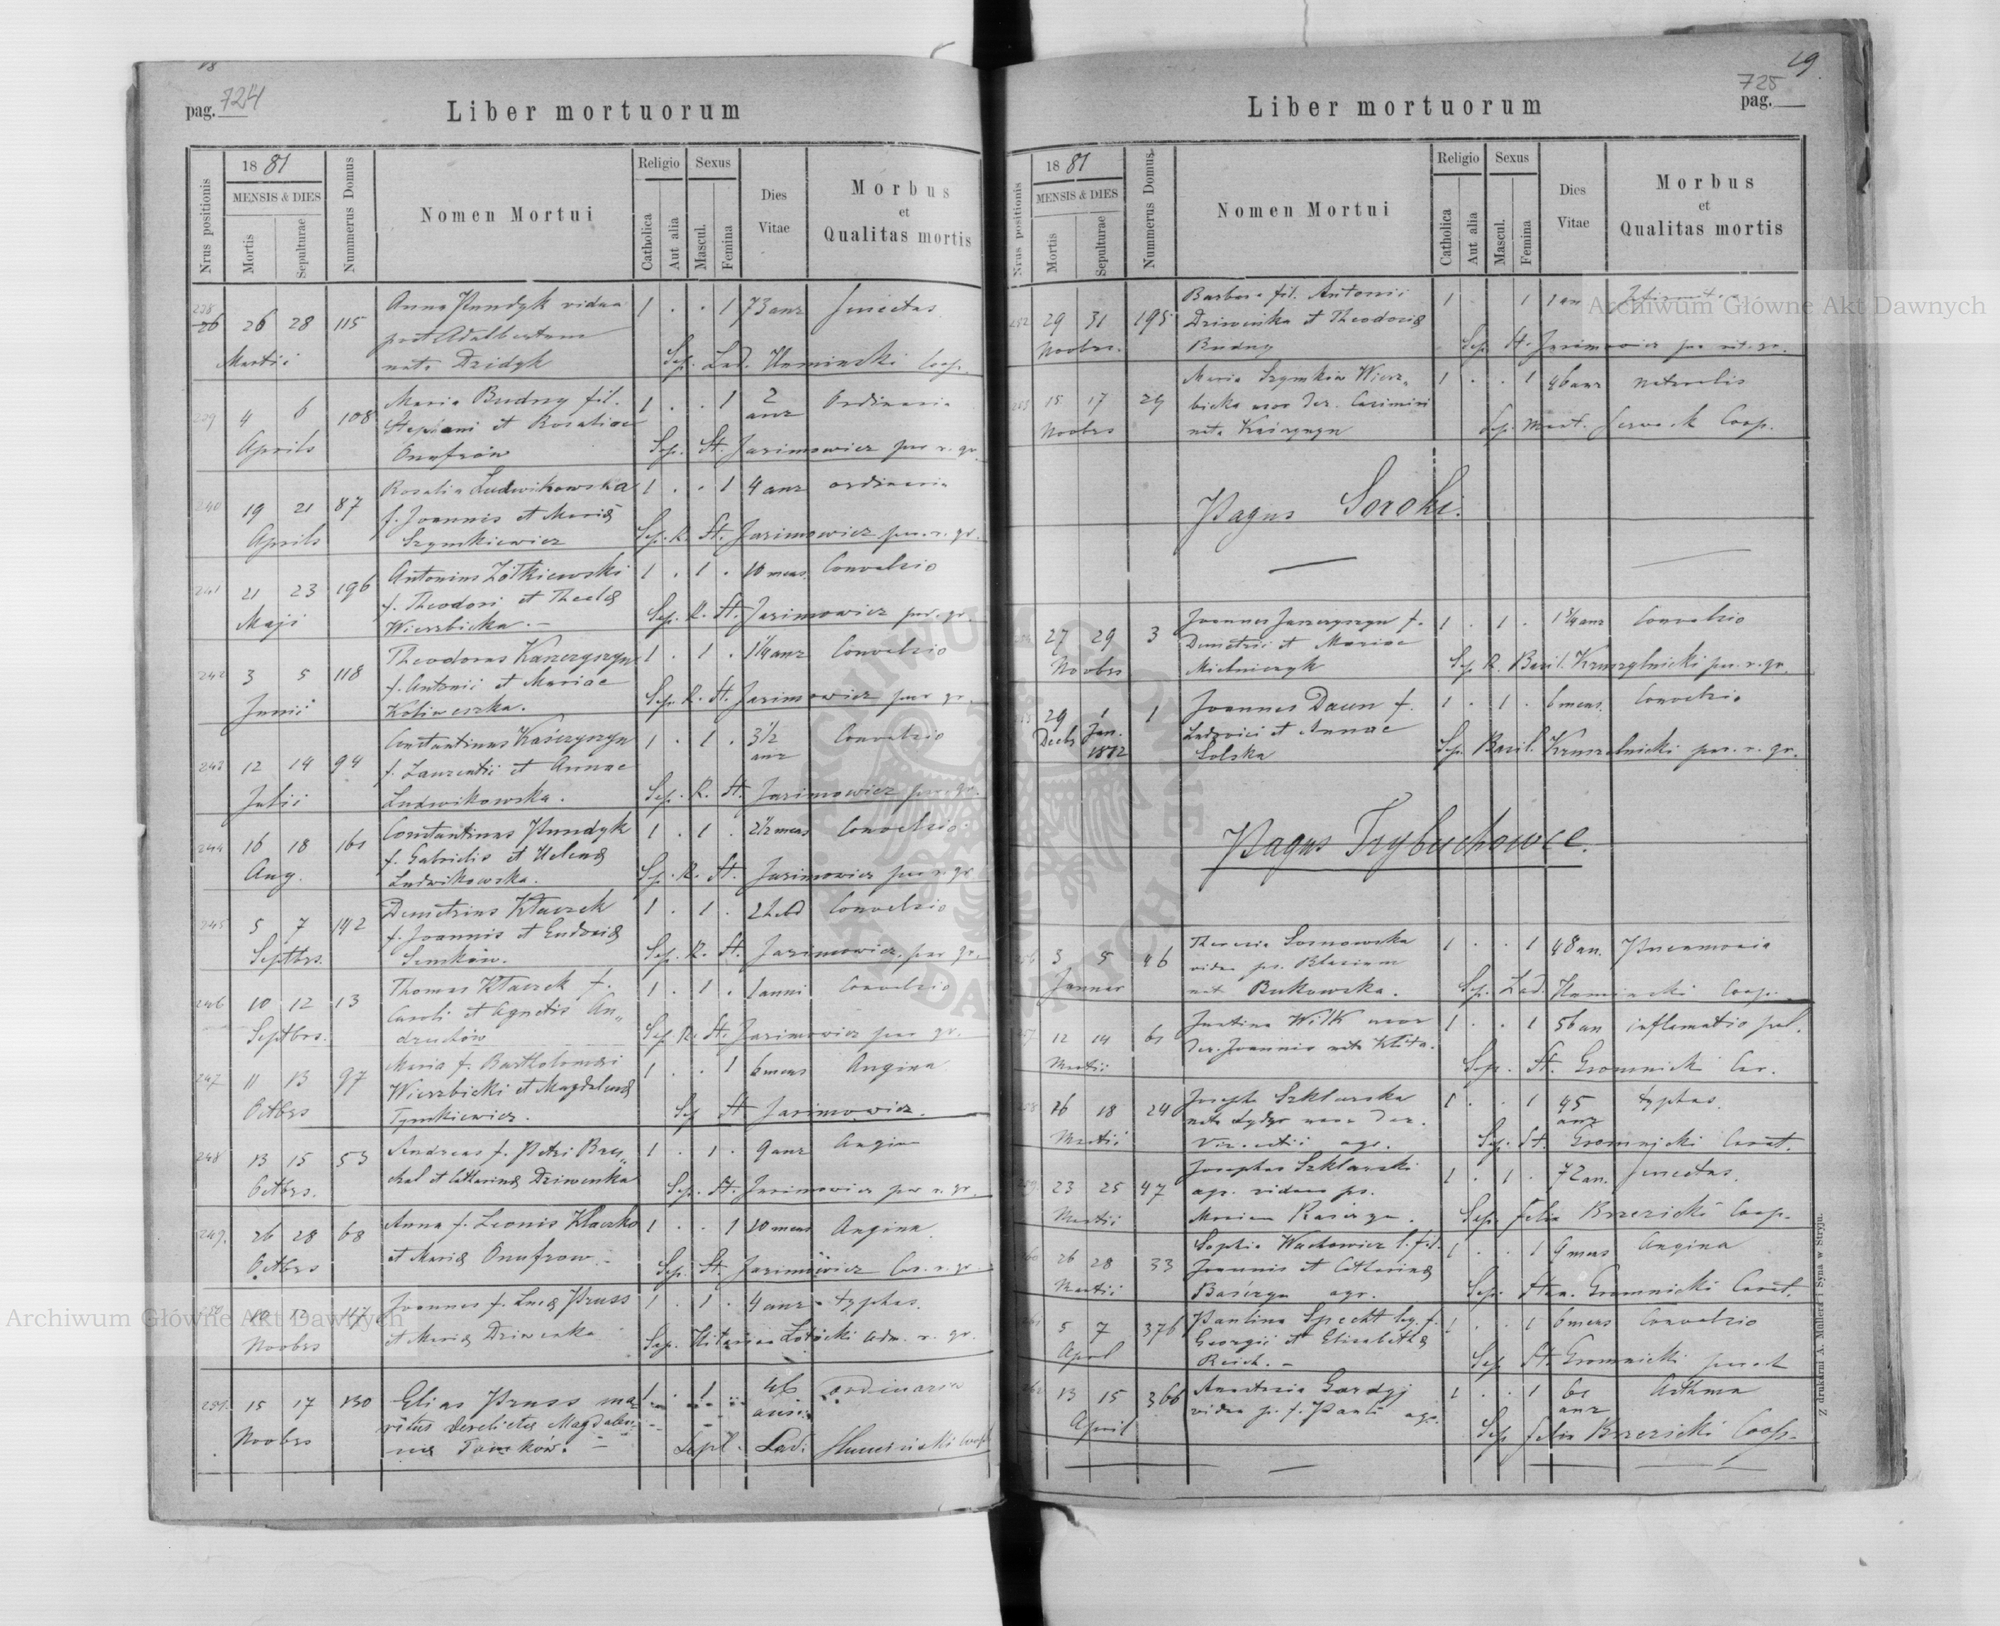 18
pag. 724
Liber mortuorum
Nrus positionis
1881
MENSIS & DIES
Mortis
Sepulturae
Nummerus Domus
Nomen Mortui
Religio
Catholica
Aut alia
Sexus
Mascul.
Femina
Dies Vitae
Morbus
et
Qualitas mortis
238 26 28 115 Anna Pundyk vidua 1 . . 1 73 anr Senectus
post Adalbertum
Martii nata Dzidyk Sep. Lad. Coop.
239 4 6 108 Maria Budny fil. 1 . . 1 2 anr Ordinaria
Stephani et Rosaliae
Aprils Onufrów Sep. St. Jasimowicz par r. gr.
240 19 21 87 Rosalia Ludwikowska 1 . . 1 4 anr ordinaria
f. Joannis et Mariæ
Aprils Szymkiewicz Sep. R. St. Jasimowicz par. r. gr.
241 21 23 196 Antonius Żółkiewski 1 . 1 . 10 mens. Convulsio
f. Theodori et Theclæ
Maji Wierzbicka. — Sep. R. St. Jasimowicz par. gr.
242 3 5 118 Theodorus Kaszczyszyn 1 . 1 . 1¼ anr Convulsio
f. Antonii et Mariae
Junii Sep. R. St. Jasimowicz par gr.
243 12 14 94 Constantinus 1 . 1 . 3½ anr Convulsio
f. Laurentii et Annae
Julii Ludwikowska. Sep. R. St. Jasimowicz par. gr.
244 16 18 161 Constantinus Pundyk 1 . 1 . 2½ mens Convulsio
f. Gabrielis et Helenæ
Aug. Ludwikowska. Sep. R. St. Jasimowicz par r. gr.
245 5 7 192 Demetrius Kłaczek 1 . 1 . 2 hebd Convulsio
f. Joannis et Eudoxiæ
Septbrs. Senków. Sep. R. St. Jasimowicz par gr.
246 10 12 13 Thomas Kłaczek f. 1 . 1 . 1 anni Convulsio
Caroli et Agnetis An„
Septbrs. druchów Sep. R. St. Jasimowicz par gr.
247 11 13 97 Maria f. Bartholomæi 1 . . 1 6 mens Angina
Wierzbicki et Magdalenæ
Octbrs Tymkiewicz. Sep St Jasimowicz.
248 13 15 53 Andreas f. Petri 1 . 1 . 9 anr Angina
et Catharinæ Dziwenka
Octbrs. Sep. St. Jasimowicz par r. gr.
249. 26 28 68 Anna f. Leonis Klaczko 1 . . 1 10 mens Angina.
et Mariæ Onufrow. —
Octbrs Sep. St. Jasimowicz r. gr.
250 10 12 117 Joannes f. Lucæ Pruss 1 . 1 . 4 anr typhus.
et Mariæ Dziwenka
Novbrs Sep. Hilarion Adm. r. gr.
251. 15 17 130 Elias Pruss ma 1 1 46 anni ordinaria
ritus derelictus Magdale
Novbrs næ Tomków. — Sepl. Lad. Coop
19.
725
pag.
Liber mortuorum
Nrus positionis
1881
MENSIS & DIES
Mortis
Sepulturae
Nummerus Domus
Nomen Mortui
Religio
Catholica
Aut alia
Sexus
Mascul.
Femina
Dies Vitae
Morbus
et
Qualitas mortis
252 29 31 195 Barbara fil. Antonii 1 . 1 1 an
Dziwenka et Theodoræ
Novbrs. Budny Sep. St. Jasimowicz par rit. gr.
253 15 17 29 Maria Szymków Wierz„ 1 . . 1 46 anr naturalis
bicka uxor Der. Casimiri
Novbrs nata Sep. Mart. Coop.
Pagus Soroki.
254 27 29 3 Joannes f. 1 . 1 . 1¾ anr Convulsio
Demetrii et Mariae
Novbrs Mielniczyk Sep. R. Basil. Kruszelnicki par. r. gr.
255 29 1 1 Joannes Daun f. 1 . 1 . 6 mens. Convulsio
Decb Jan. Ludovici et Annae
1882 Solska Sep. Basil. Kruszelnicki par. r. gr.
Pagus Trybuchowce.
256 3 5 46 Theresia Sosnowska 1 . . 1 48 an. Pneumonia
vidua ps. Blasium
Januar nat Bukowska. Sep. Lad. Coop.
257 12 14 61 Justina Wilk uxor 1 . . 1 56 an inflamatio pul.
der. Joannis nata
Martii Sep. St. Gromnicki
258 16 18 240 Josepha Szklarska 1 . . 1 45 anr typhus.
nata uxor Der.
Martii Vincentii agr. Sep. St. Gromnicki
259 23 25 47 Josephus Szklarski 1 . 1 . 72 an. Senectus.
agr. viduus ps.
Martii Mariam Sep. Felix Brzezicki Coop.
260 26 28 33 Sophia Wachowicz l. fil. 1 . . 1 9 mens Angina
Joannis et Catharinæ
Martii agr. Sep. Stan. Gromnicki
261 5 7 376 Paulina Specht leg. f. 1 . . 1 6 mens Convulsio
Georgii et Elisabethæ
April Reich. — Sep St. Gromnicki
262 13 15 366 Anastasia Gardyj 1 . . 1 61 anr Asthma
vidua p. f. Pauli agr.
April Sep Felix Brzezicki Coop.
Z drukarni A. Müllera i Syna w Stryju.
Archiwum Główne Akt Dawnych
Archiwum Główne Akt Dawnych
ARCHIWUM GŁÓWNE AKT DAWNYCH